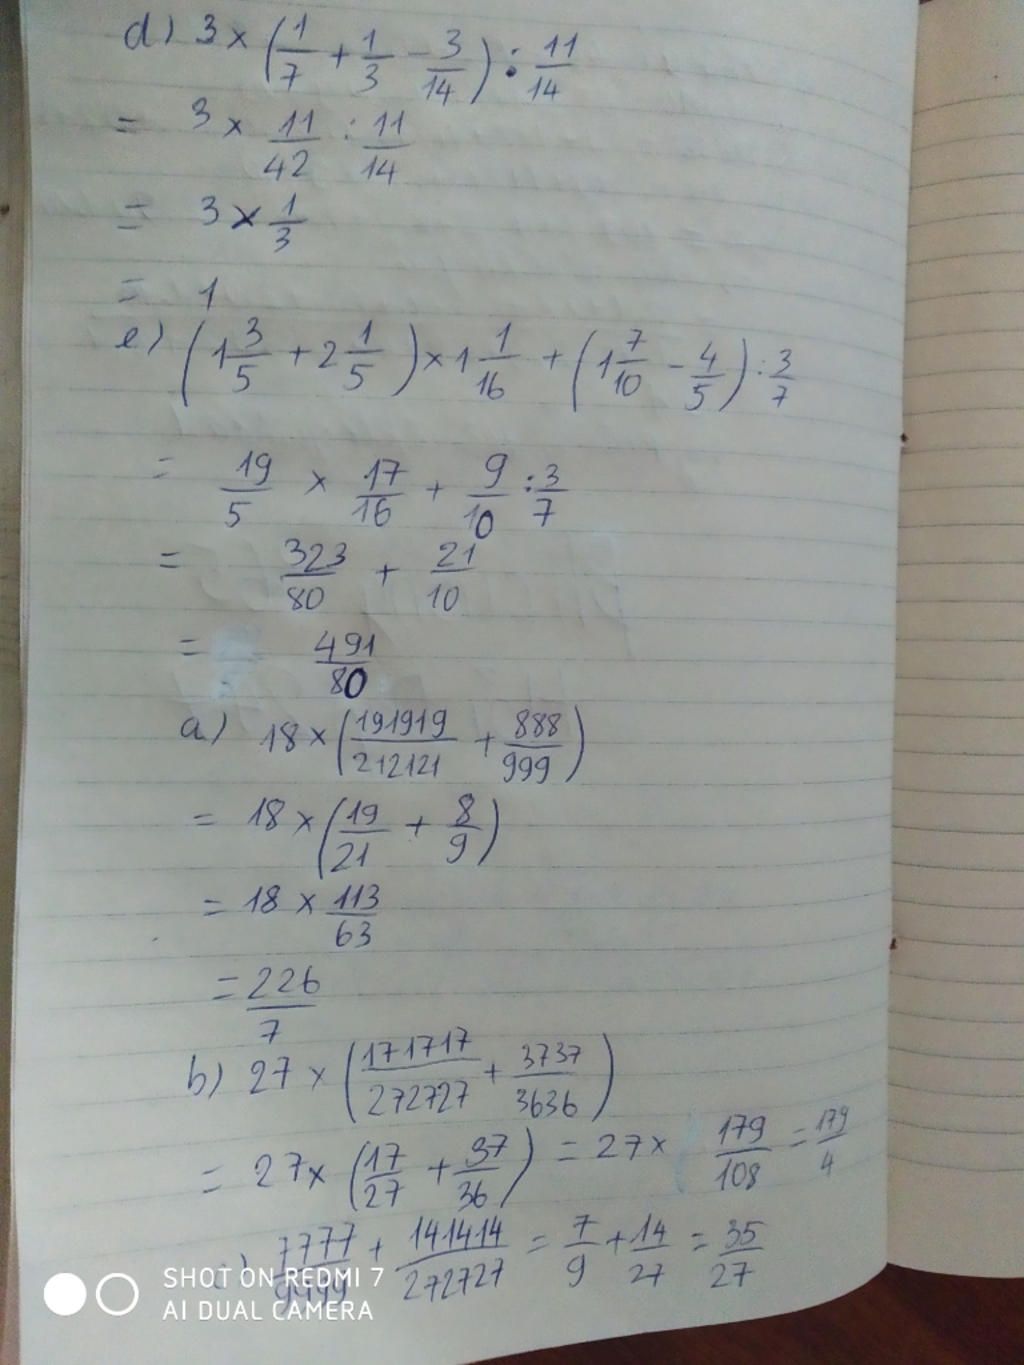 d) 3 × (1/7 + 1/3 - 3/14) : 11/14
= 3 × 11/42 : 11/14
= 3 × 1/3
= 1
e) (1 3/5 + 2 1/5) × 1 1/16 + (1 7/10 - 4/5) : 3/7
= 19/5 × 17/16 + 9/10 : 3/7
= 323/80 + 21/10
= 491/80
a) 18 × (191919/212121 + 888/999)
= 18 × (19/21 + 8/9)
= 18 × 113/63
= 226/7
b) 27 × (171717/272727 + 3737/3636)
= 27 × (17/27 + 37/36) = 27 × 179/108 = 179/4
c) 7777/9999 + 141414/272727 = 7/9 + 14/27 = 35/27
SHOT ON REDMI 7
AI DUAL CAMERA